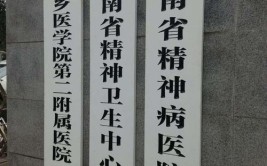 乡医学院第二附属医院
南省精神卫生中心
南省精神病医院